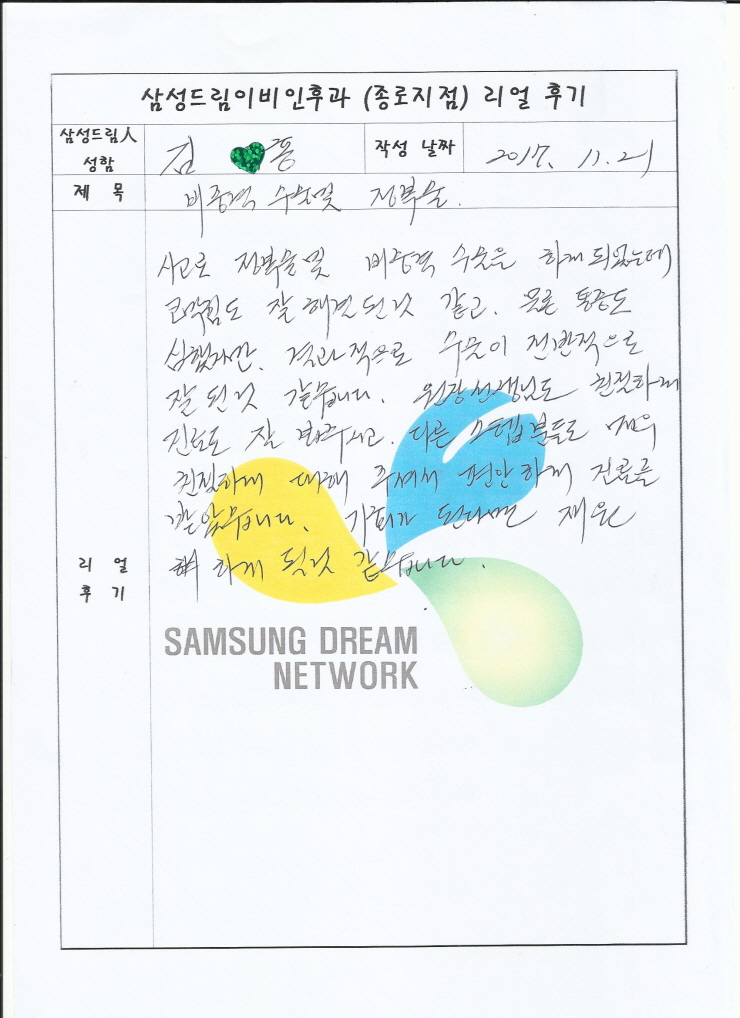 삼성드림이비인후과 (종로지점) 리얼 후기
삼성드림人 성함 김 용 작성 날짜 2017. 11. 21
제 목 비중격 수술및 정복술.
사고로 정복술및 비중격 수술은 하게 되었는데
코막힘도 잘 해결된것 같고. 물론 통증도
심했지만. 결과적으로 수술이 전반적으로
잘 된것 같습니다. 원장선생님도 친절하게
진료도 잘 봐주시고. 다른 스텝분들도 매우
친절하게 대해 주셔서 편안하게 진료를
받았습니다. 기회가 된다면 재
하게 될것 같습니다.
리 얼
후 기
SAMSUNG DREAM
NETWORK